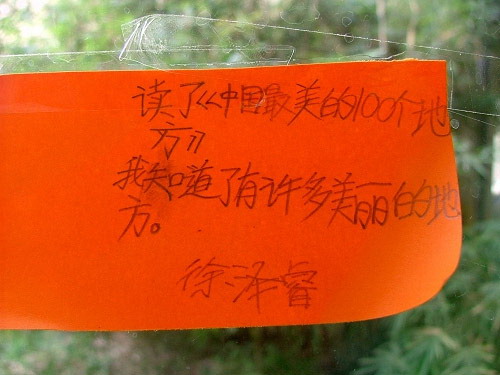 读了《中国最美的100个地
方》
我知道了有许多美丽的地
方。
徐泽睿